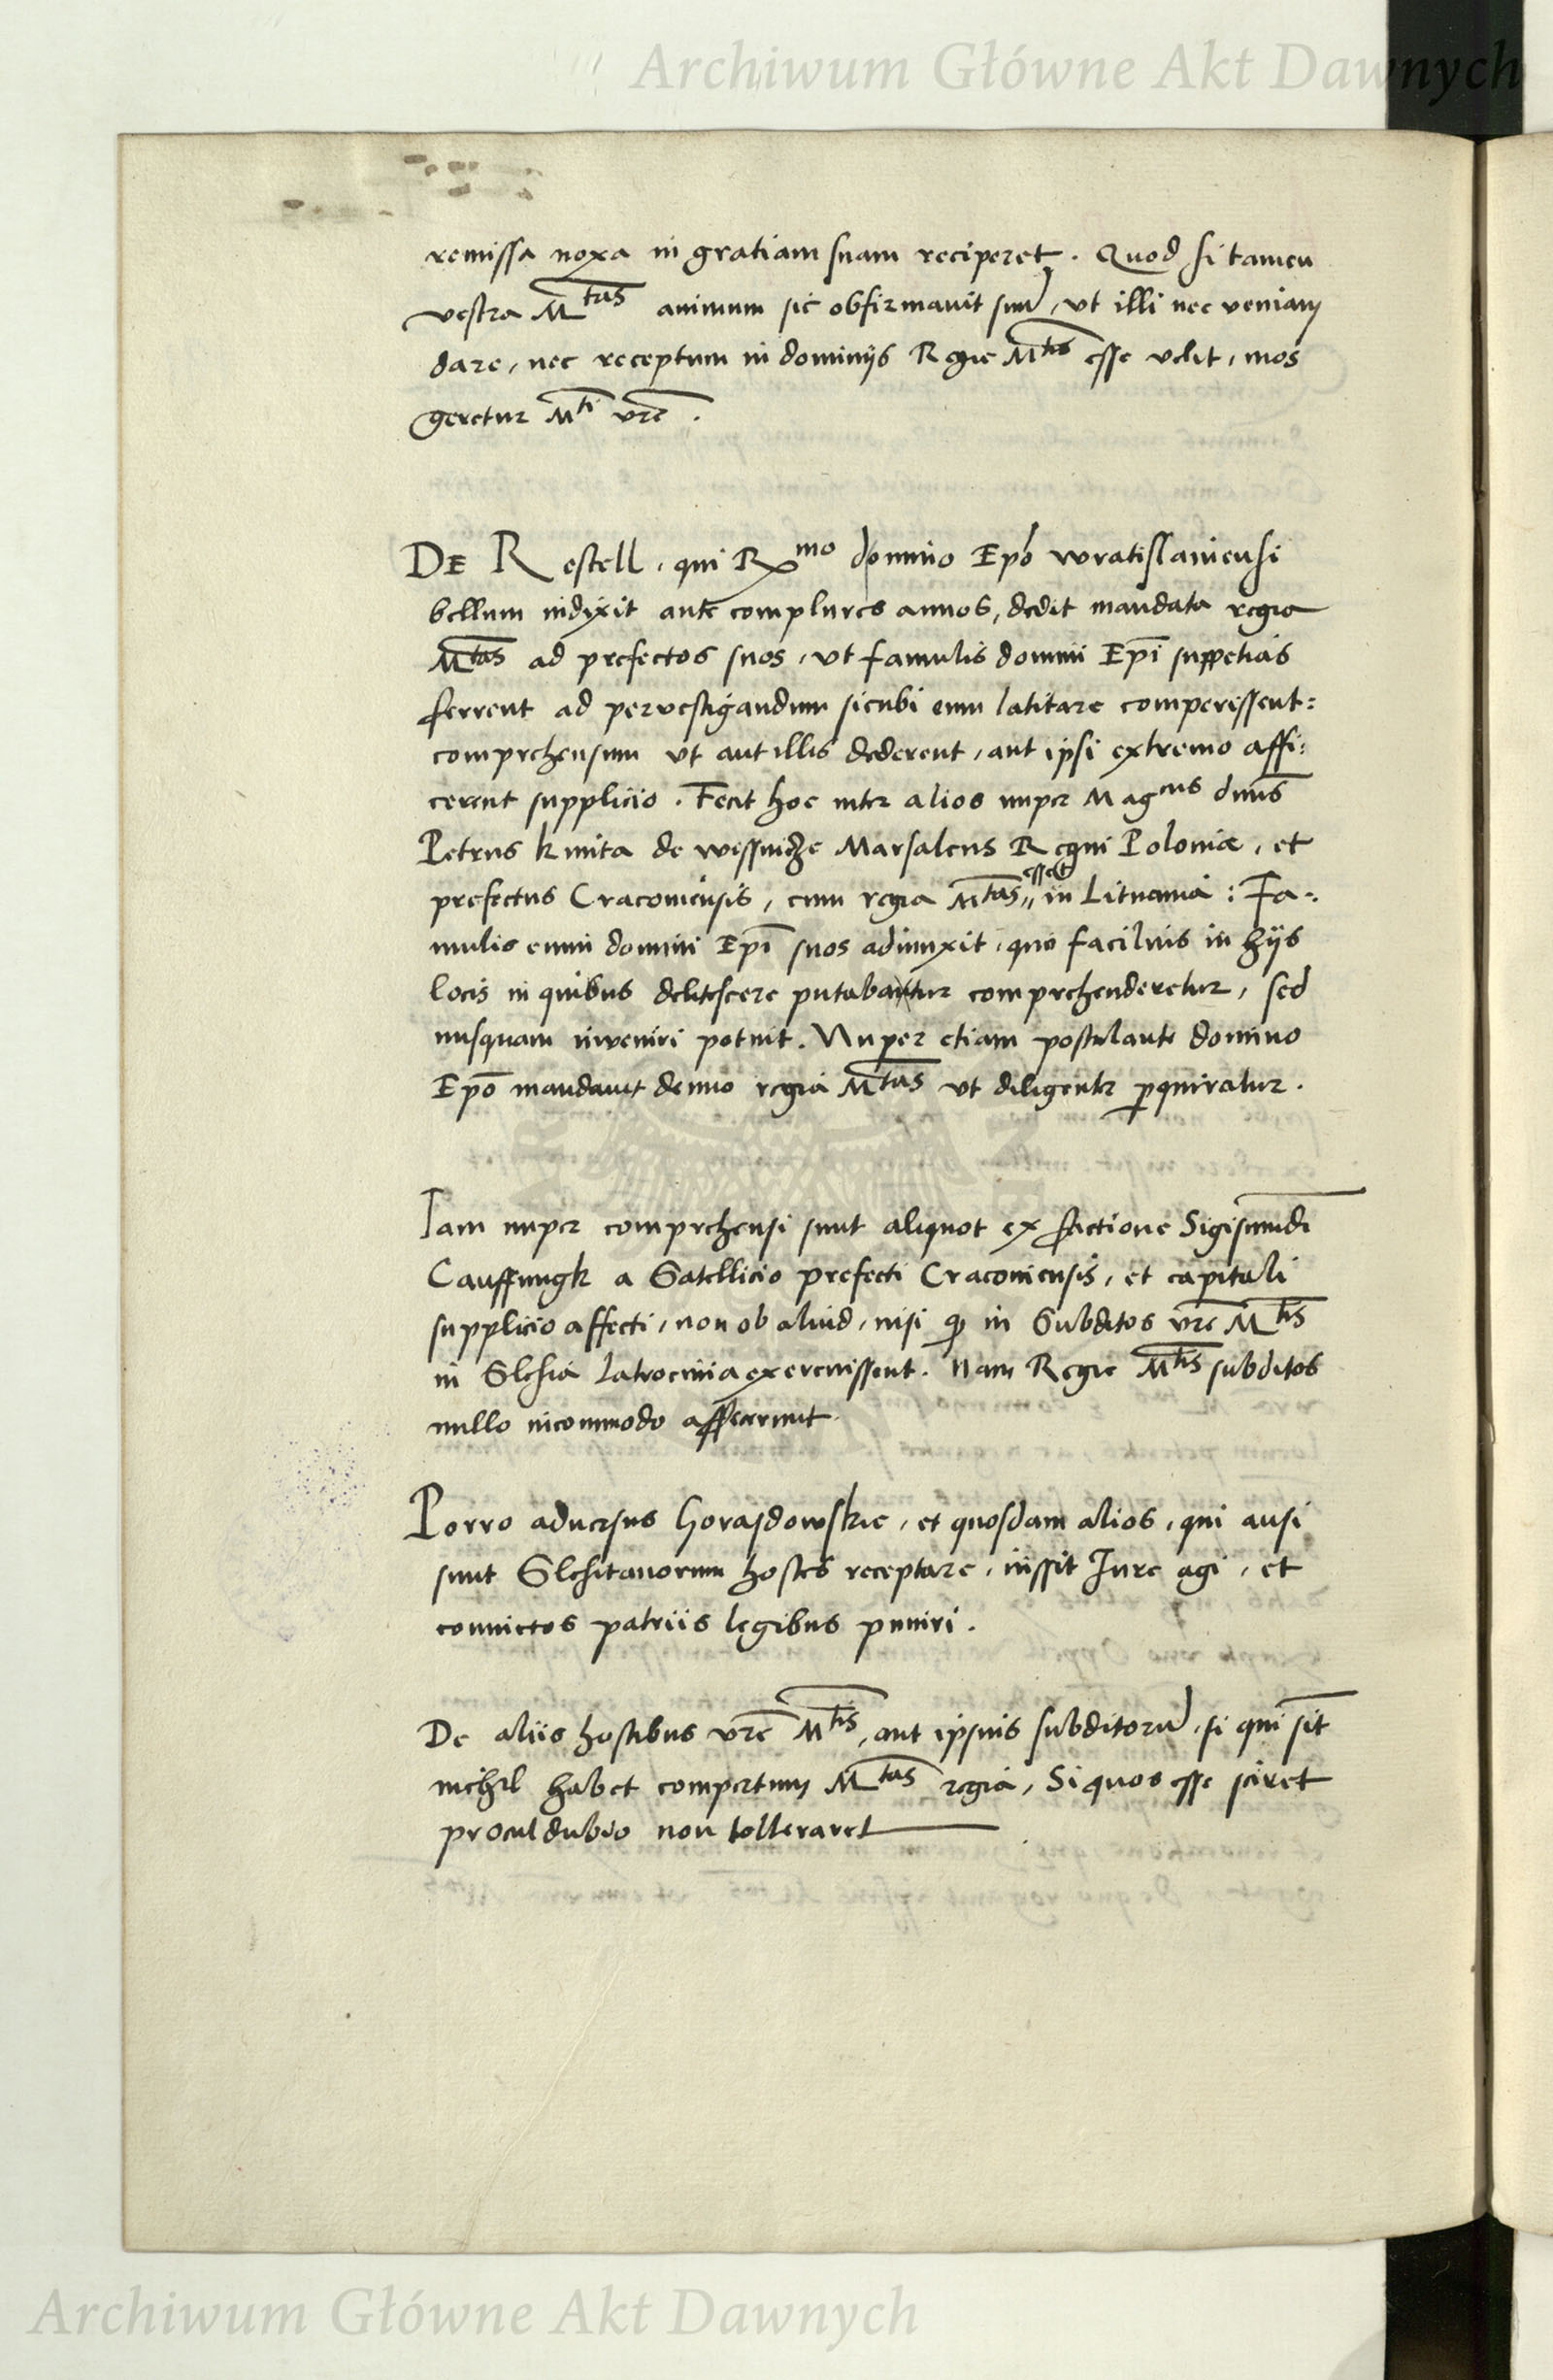 Archiwum Główne Akt Dawnych
remissa noxa in gratiam suam reciperet. Quod si tamen
vestra Mtas animum sic obfirmavit suu, ut illi nec veniam
dare, nec receptum in dominijs Regie Mtis esse velit, mos
geretur Mti vre.
DE Restell, qui Rxmo domino Epo wratislaviensi
bellum indixit ante complures annos, dedit mandata regia
Mtas ad prefectos suos, ut famulis domini Epi suppetias
ferrent ad pervestigandum sicubi eum latitare comperissent:
comprehensum ut aut illis dederent, aut ipsi extremo affi:
cerent supplicio. Fecit hoc inter alios nuper Magcus dnus
Petrus kmita de wessnicze Marsalcus Regni Polonie, et
prefectus Cracoviensis, cum regia Mtas esset in Lituania: Fa:
mulis enim domini Epi suos adiunxit, quo facilius in hijs
locis in quibus delitescere putabatur comprehenderetur, sed
nusquam inveniri potuit. Nuper etiam postulante domino
Epo mandavit denuo regia Mtas ut diligenter pquiratur.
Iam nuper comprehensi sunt aliquot ex factione Sigismudi
Cauffungk a Satellicio prefecti Cracoviensis, et capitali
supplicio affecti, non ob aliud, nisi q in Subditos vre Mtis
in Slesia latrocinia exercuissent. Nam Regie Mtis subditos
nullo incommodo affecerunt.
Porro adversus Horasdowskie, et quosdam alios, qui ausi
sunt Slesitanorum hostes receptare, iussit Iure agi, et
convictos patriis legibus puniri.
De aliis hostibus vre Mtis, aut ipsius subditoru, si qui sit
nichil habet compertum Mtas regia, Si quos esse sciret
proculdubio non tolleraret
Archiwum Główne Akt Dawnych